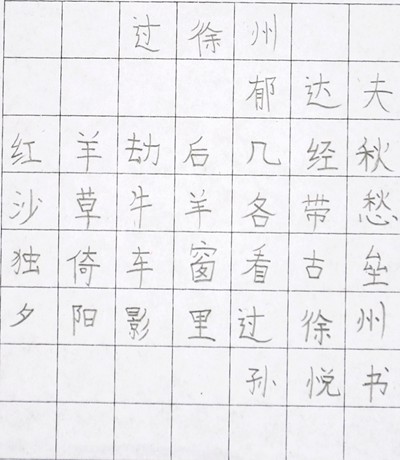 过徐州
郁达夫
红羊劫后几经秋
沙草牛羊各带愁
独倚车窗看古垒
夕阳影里过徐州
孙悦书